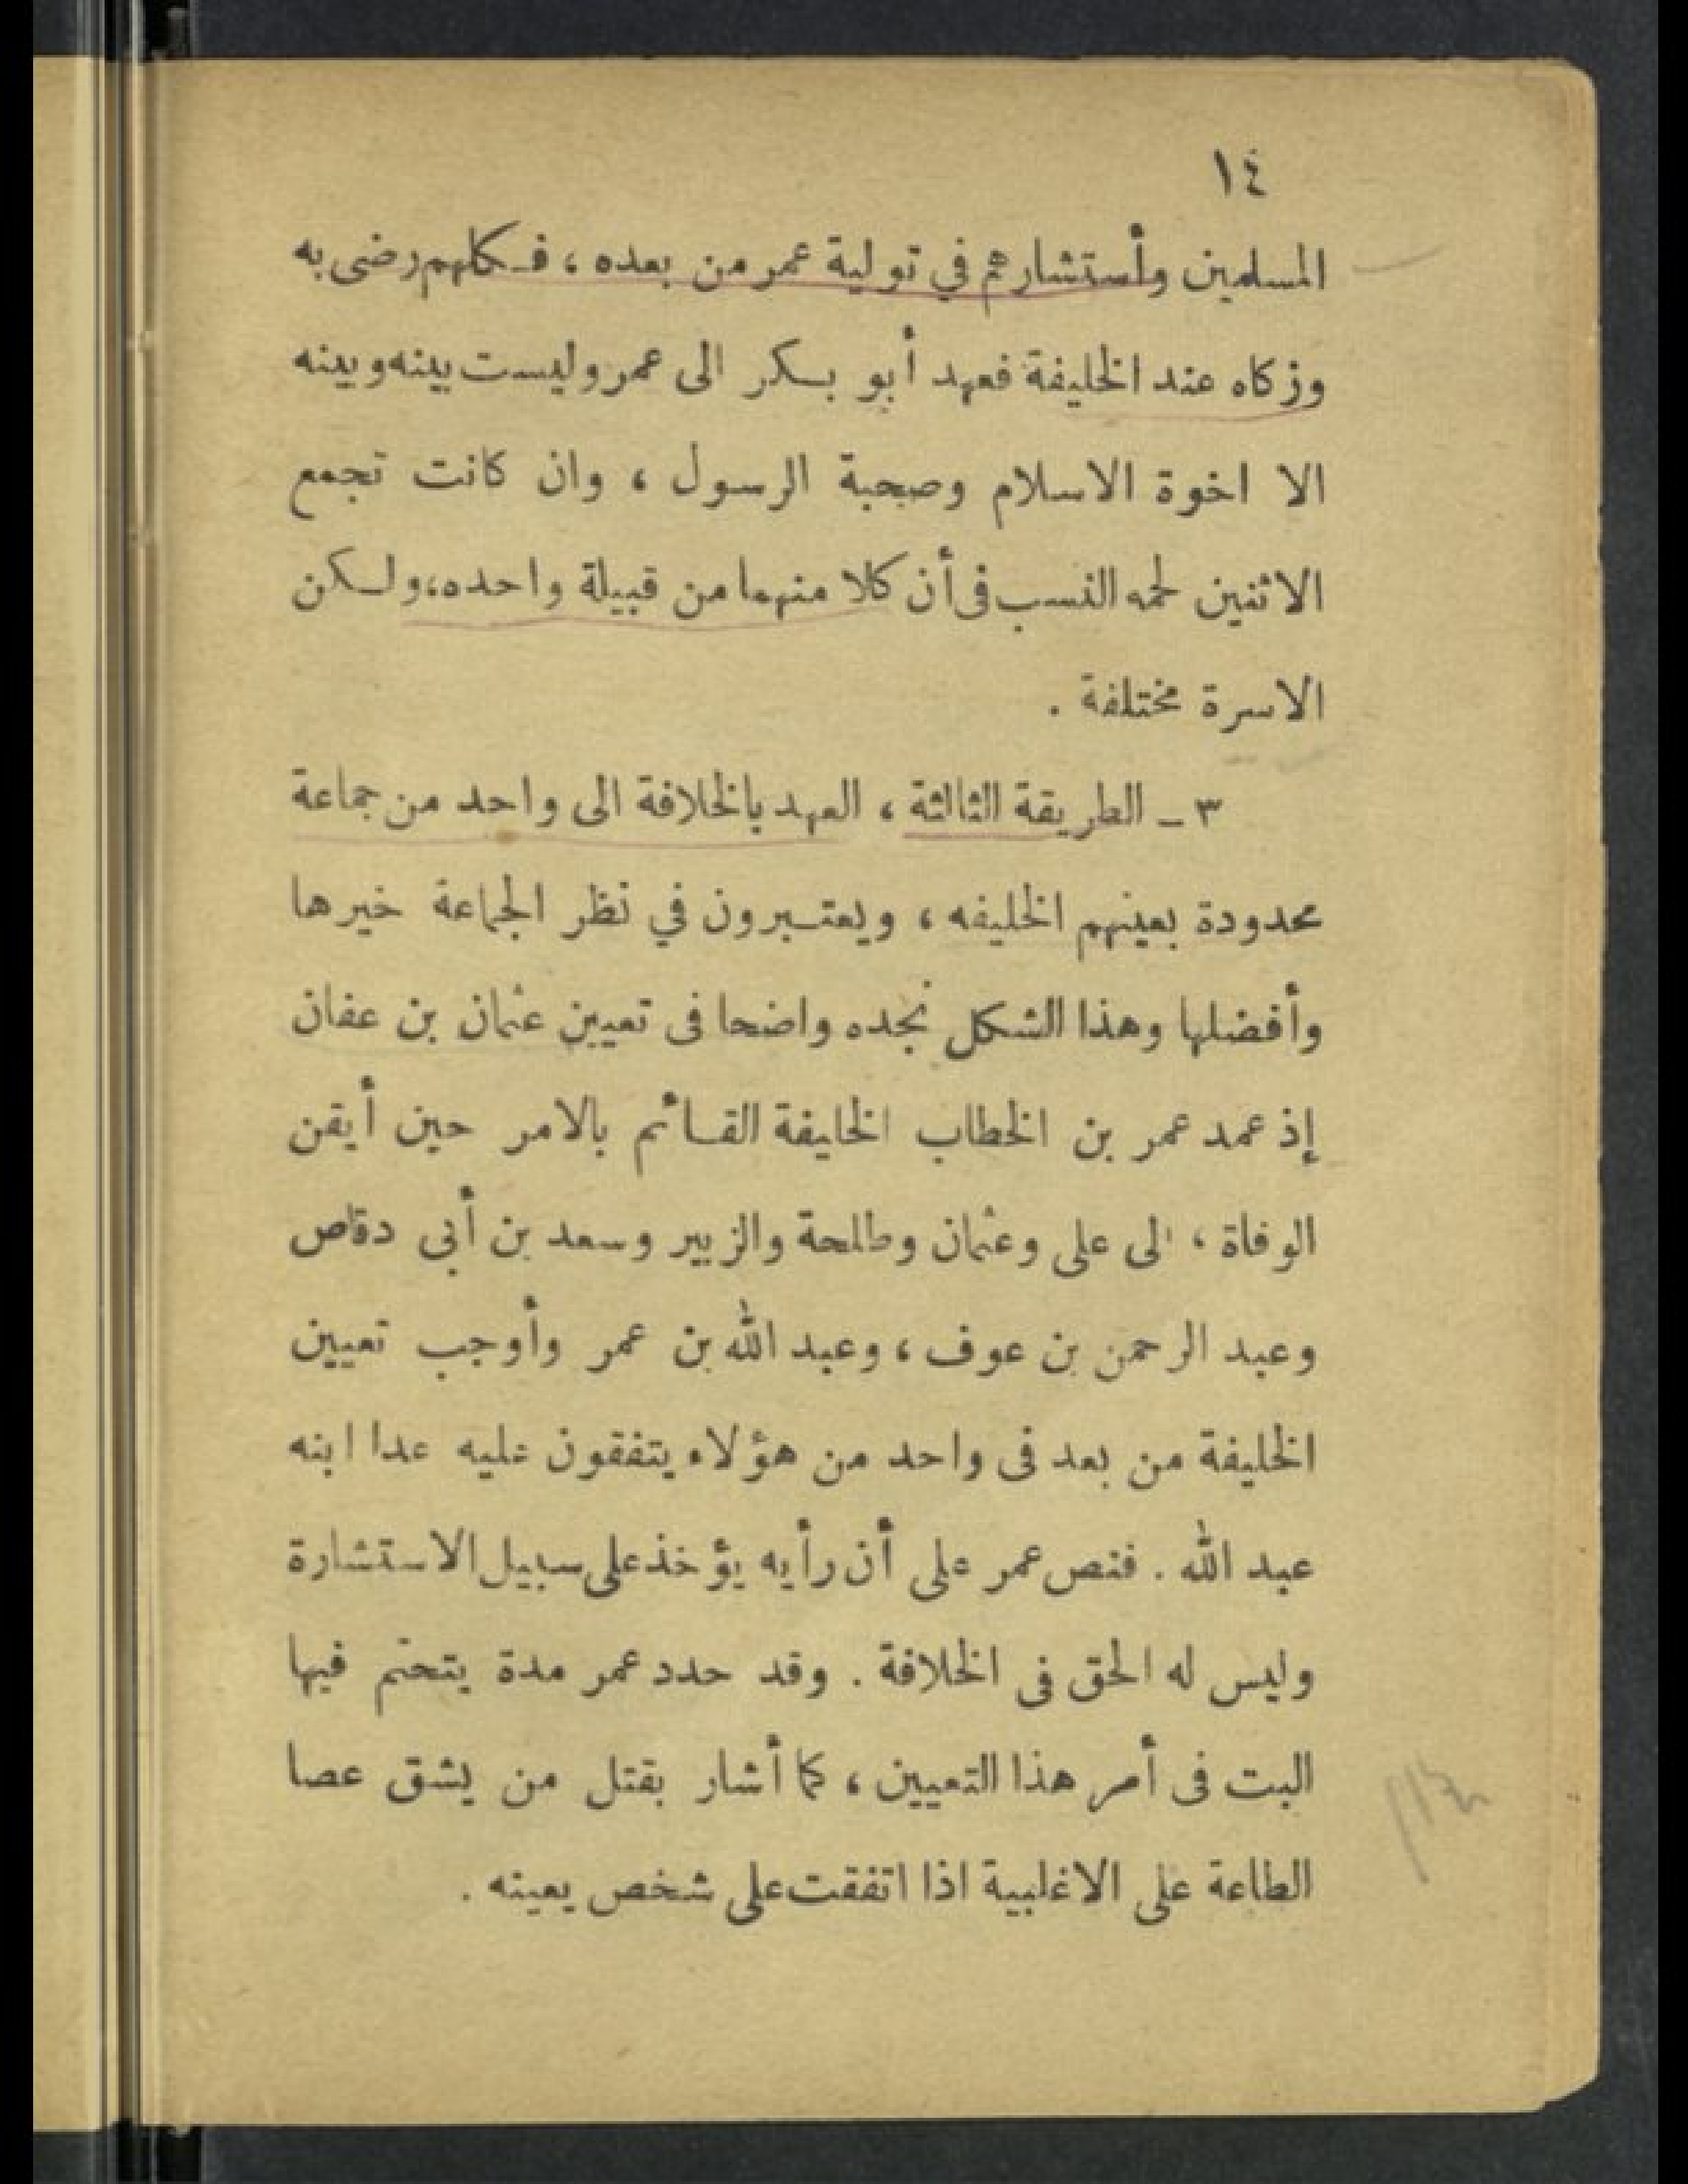 ١٤
المسلمين وأستشارهم في تولية عمر من بعده ، فكلهم رضى به
وزكاه عند الخليفة فعهد أبو بكر الى عمر وليست بينه وبينه
الا اخوة الاسلام وصحبة الرسول ، وان كانت تجمع
الاثنين لحمه النسب فى أن كلا منهما من قبيلة واحده ، ولكن
الاسرة مختلفة .
٣ ـ الطريقة الثالثة ، العهد بالخلافة الى واحد من جماعة
محدودة بعينهم الخليفه ، ويعتبرون في نظر الجماعة خيرها
وأفضلها وهذا الشكل نجده واضحا فى تعيين عثمان بن عفان
إذ عمد عمر بن الخطاب الخليفة القائم بالامر حين أيقن
الوفاة ، الى على وعثمان وطلحة والزبير وسعد بن أبى دقاص
وعبد الرحمن بن عوف ، وعبد الله بن عمر وأوجب تعيين
الخليفة من بعد فى واحد من هؤلاء يتفقون عليه عدا ابنه
عبد الله . فنص عمر على أن رأيه يؤخذ على سبيل الاستشارة
وليس له الحق فى الخلافة . وقد حدد عمر مدة يتحتم فيها
البت فى أمر هذا التعيين ، كما أشار بقتل من يشق عصا
الطاعة على الاغلبية اذا اتفقت على شخص يعينه .